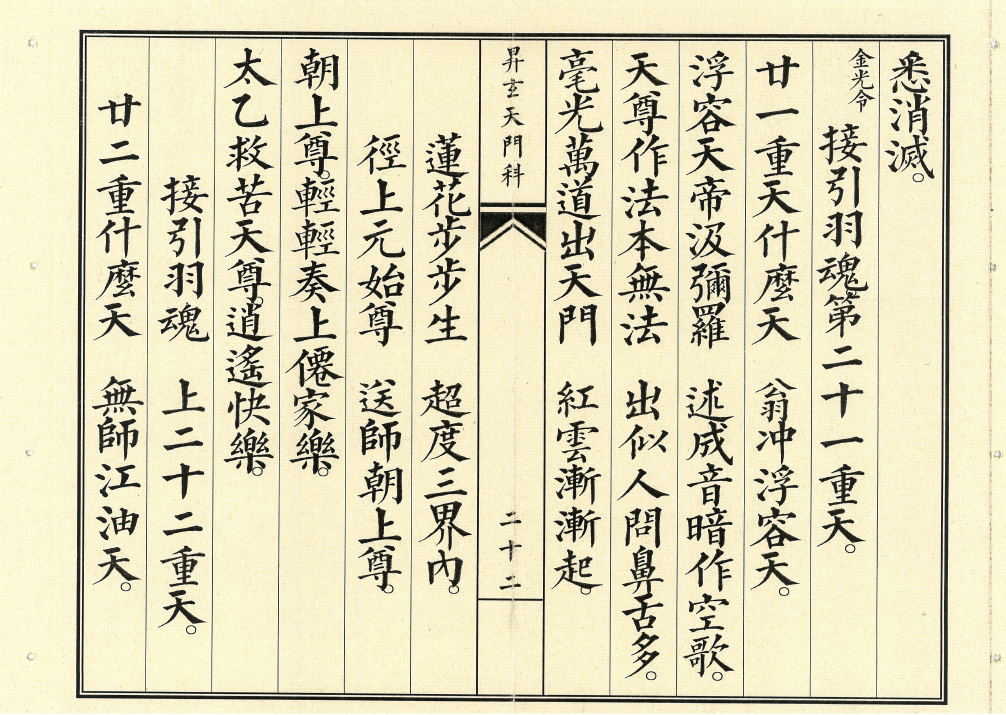 悉消滅。
金光令
接引羽魂第二十一重天。
廿一重天什麼天　翁冲浮容天。
浮容天帝汲彌羅　述成音暗作空歌。
天尊作法本無法　出似人問鼻舌多。
毫光萬道出天門　紅雲漸漸起。
昇玄天門科
二十二
蓮花步步生　超度三界內。
徑上元始尊　送師朝上尊。
朝上尊。輕輕奏上僊家樂。
太乙救苦天尊。逍遙快樂。
接引羽魂　上二十二重天。
廿二重什麼天　無師江油天。